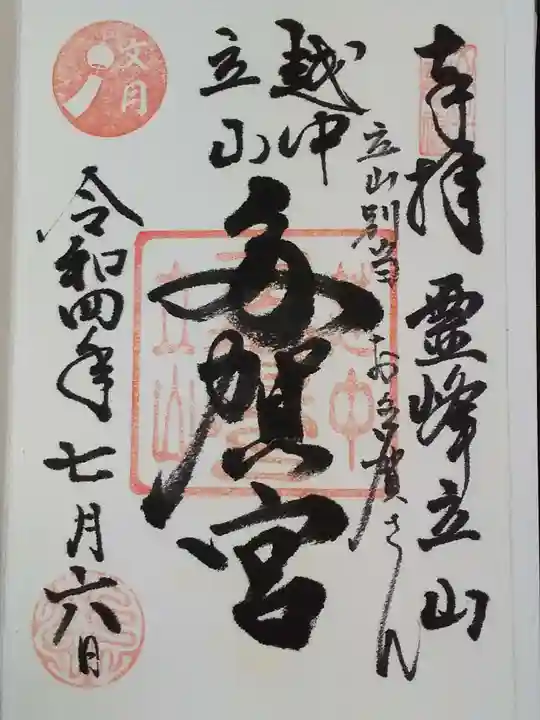 奉拝 霊峰立山
立山別当 お多賀さん
越中
立山
多賀宮
文月
令和四年七月六日